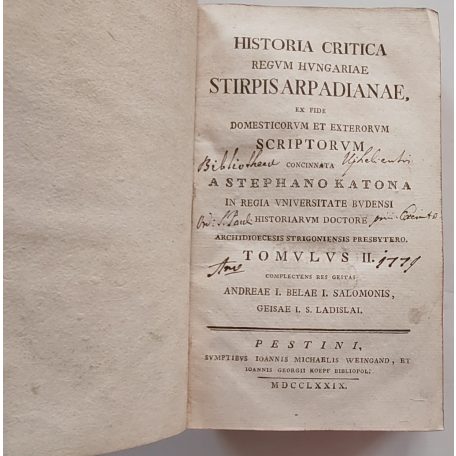 HISTORIA CRITICA
REGVM HVNGARIAE
STIRPIS ARPADIANAE,
EX FIDE
DOMESTICORVM ET EXTERORVM
SCRIPTORVM
CONCINNATA
A STEPHANO KATONA
IN REGIA VNIVERSITATE BVDENSI
Ord. S. Pauli HISTORIARVM DOCTORE
ARCHIDIOECESIS STRIGONIENSIS PRESBYTERO.
TOMVLVS II. 1779
COMPLECTENS RES GESTAS
ANDREAE I. BELAE I. SALOMONIS,
GEISAE I. S. LADISLAI.
PESTINI,
SVMPTIBVS IOANNIS MICHAELIS WEINGAND, ET
IOANNIS GEORGII KOEPF BIBLIOPOL.
MDCCLXXIX.